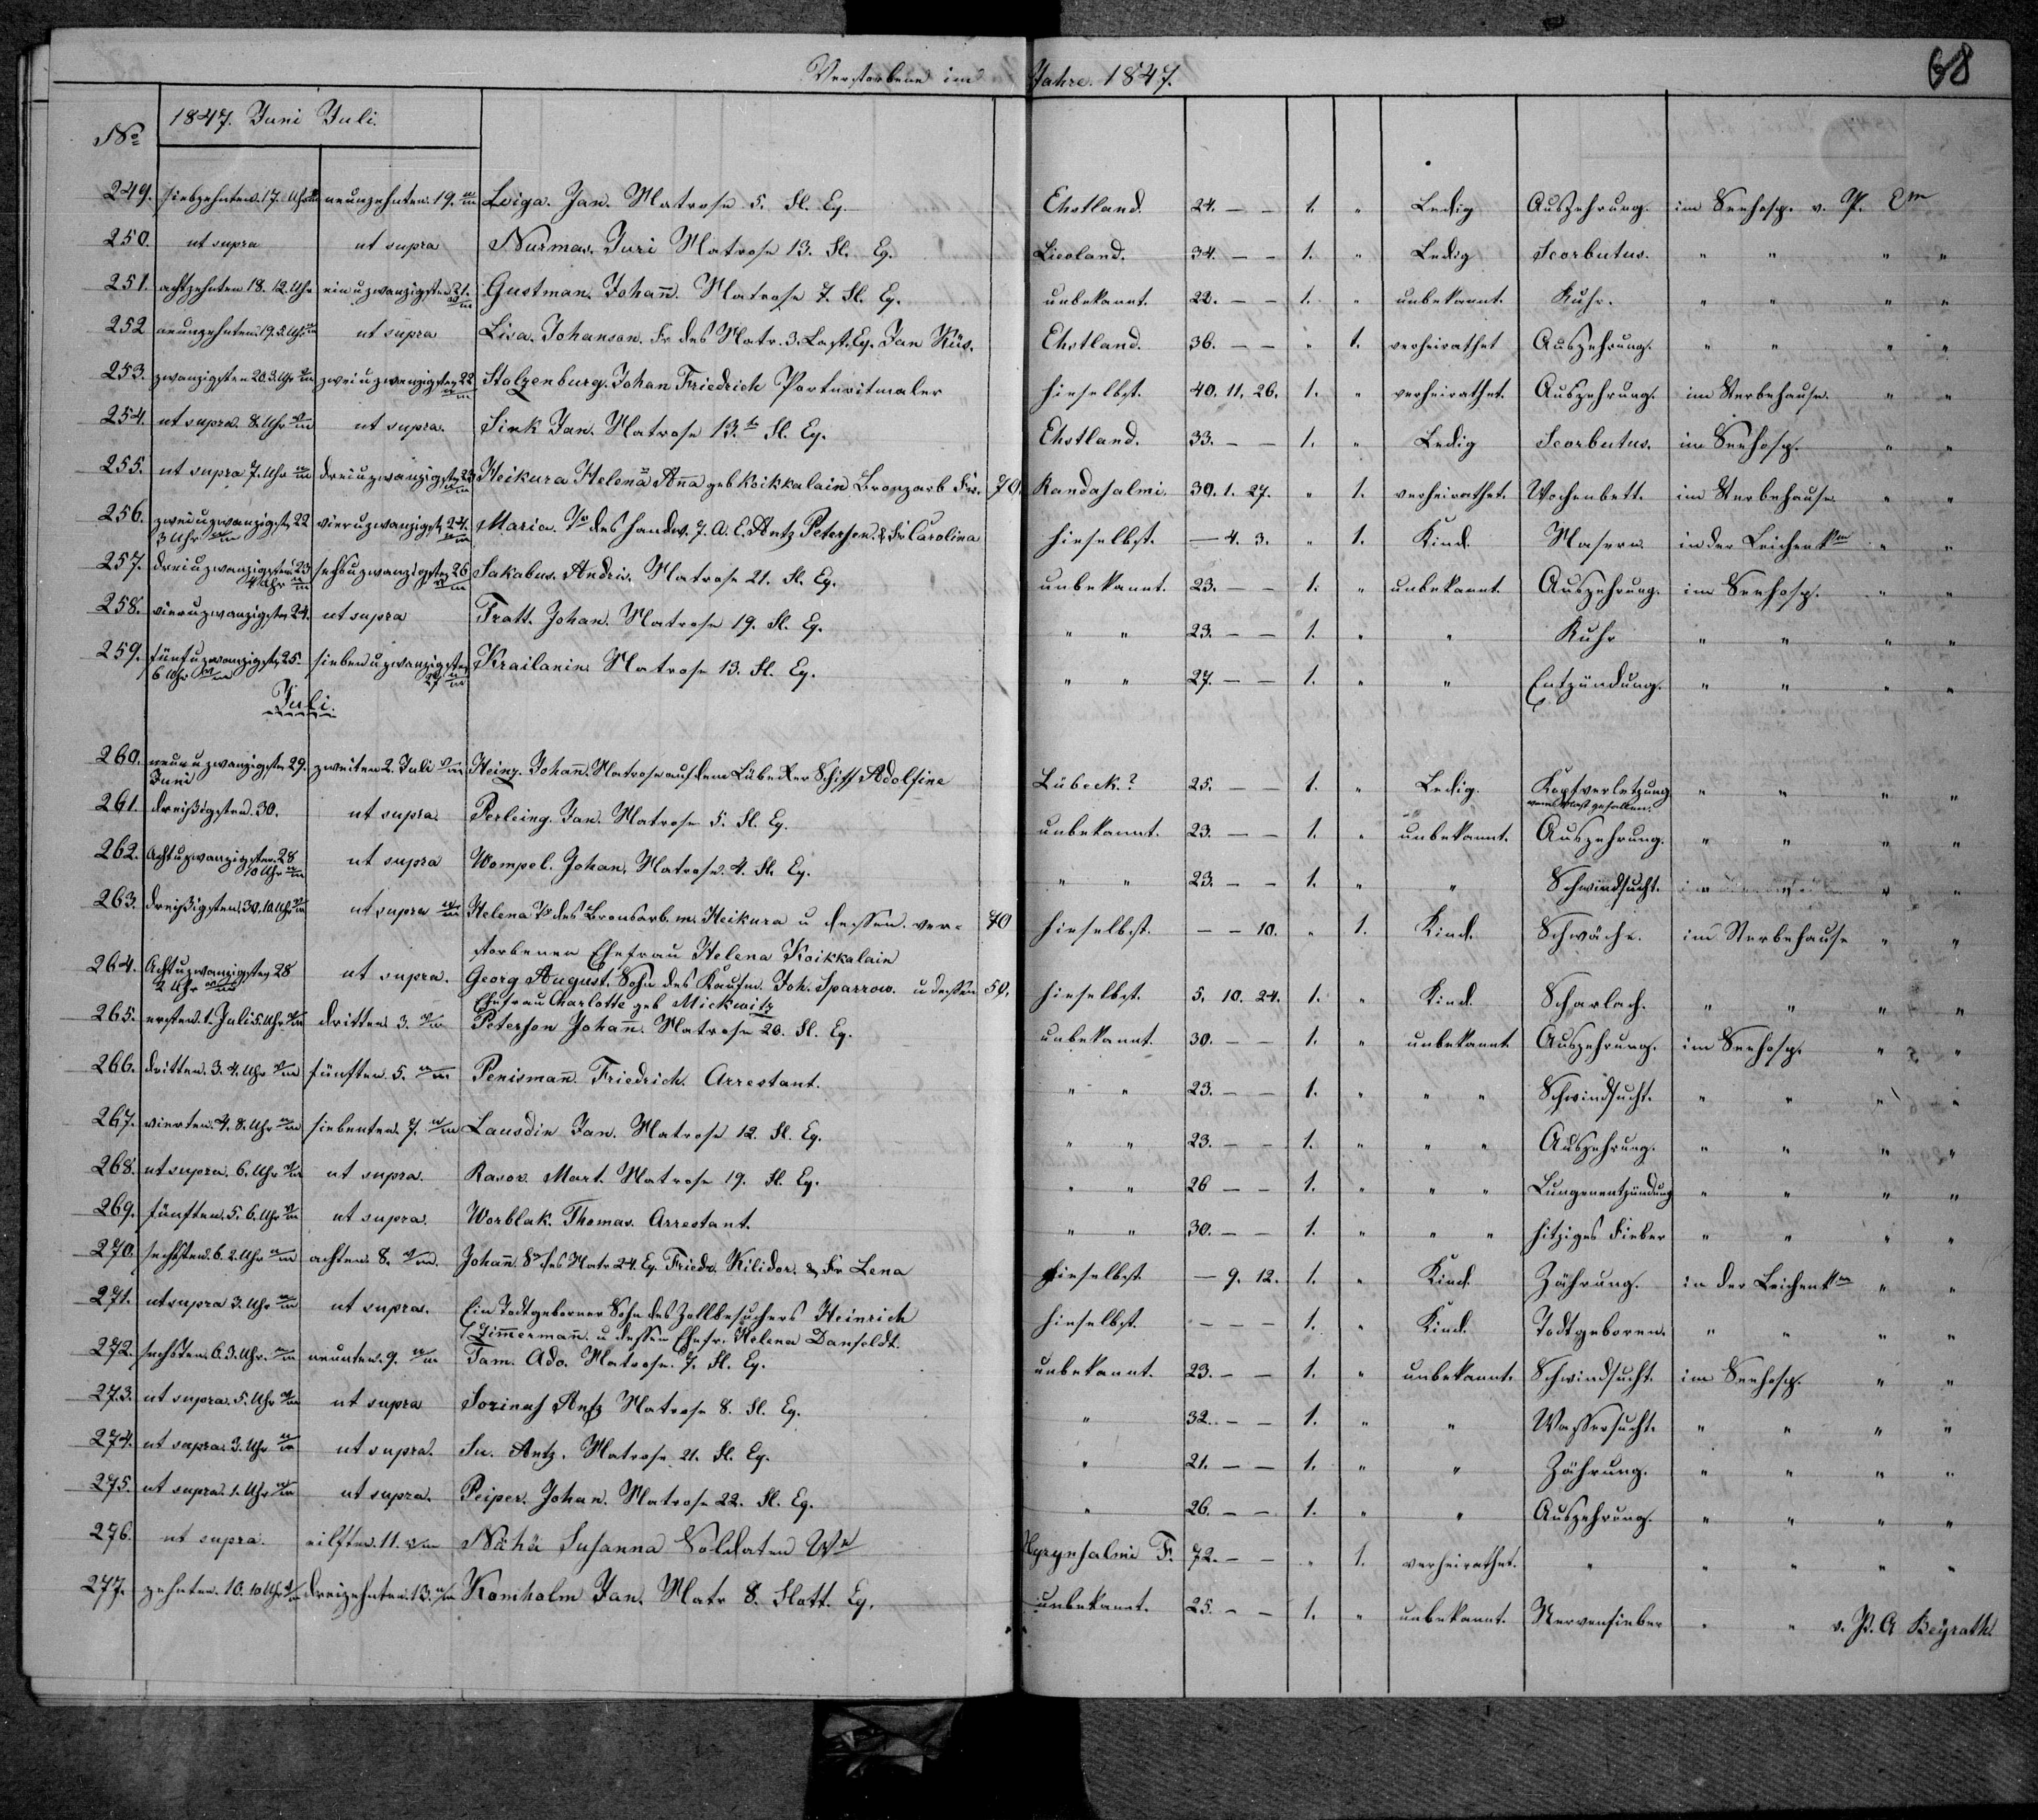 Verstorbene im Jahre. 1847. 68
No 1847. Juni Juli.
249. siebzehnten. 17. Uhr neunzehnten. 19. Loiga. Jan. Matrose 5. Fl. Eq. Ehstland. 24. — — 1. " Ledig Auszehrung. im Seehosp. v. P.
250. ut supra ut supra Nurmas. Juri Matrose 13. Fl. Eq. Liesland. 34. — — 1. " Ledig Scorbutus. " " " "
251. achtzehnten 18. 12. Uhr ein u zwanzigsten 21. Gustman. Johan̄. Matrose 7. Fl. Eq. unbekannt. 22. — — 1. " unbekannt. Ruhr. " " " "
252 neunzehnten. 19. 5. Uhr ut supra Lisa. Johanson. Fr des Matr. 3. Last. Eq. Jan Küs. Ehstland. 36. — — " 1. verheirathet Auszehrung. " " " "
253. zwanzigsten 20. 3. Uhr zwei u zwanzigsten 22 Stolzenburg. Johan Friedrich Portraitmaler hieselbst. 40. 11. 26. 1. " verheirathet. Auszehrung. im Sterbehause. " "
254. ut supra. 8. Uhr ut supra. Sink Jan. Matrose 13. Fl. Eq. Ehstland. 33. — — 1. " Ledig Scorbutus. im Seehosp. " "
255. ut supra 7. Uhr drei u zwanzigsten 23 Heikura Helena An̄a geb Koikkalain Bronzarb Fr. 70. Randasalmi. 30. 1. 27. " 1. verheirathet. Wochenbett. im Sterbehause " "
256. zwei u zwanzigst. 22 3 Uhr vier u zwanzigst. 24. Maria. Tr des Handw. 7. A. E. Antz Petersen. & Fr Carolina hieselbst. — 4. 3. " 1. Kind. Masern. in der Leichenk " "
257. drei u zwanzigsten 23 4 Uhr sechs u zwanzigsten 26 Jakabus. Andris. Matrose 21. Fl. Eq. unbekannt. 23. — — 1. " unbekannt. Auszehrung. im Seehosp. " "
258. vier u zwanzigsten 24. ut supra Tratt. Johan. Matrose 19. Fl. Eq. " " 23. — — 1. " " Ruhr " " " "
259. fünf u zwanzigst. 25. 6 Uhr sieben u zwanzigsten 27 Krailanin. Matrose 13. Fl. Eq. " " 27. — — 1. " " Entzündung. " " " "
Juli.
260. neun u zwanzigsten 29. Juni zweiten 2. Juli Heinz. Johan̄. Matrose auf dem Lübecker Schiff Adolfine Lübeck? 25. — — 1. " Ledig. Kopfverletzung vom Mast gefallen. " " " "
261. dreißigsten. 30. ut supra Perleing. Jan. Matrose 5. Fl. Eq. unbekannt. 23. — — 1. " unbekannt. Auszehrung. " " " "
262. Acht u zwanzigsten. 28 10 Uhr ut supra Wompel. Johan. Matrose. 4. Fl. Eq. " " 23. — — 1. " " Schwindsucht. " "
263. dreißigsten. 30. 10. Uhr ut supra Helena Tr des Bronsarb. m. Heikura u dessen. ver- 70 hieselbst. — — 10. " 1. Kind. Schwäche. im Sterbehause " "
storbenen Ehefrau Helena Koikkalain
264. Acht u zwanzigsten 28 2 Uhr ut supra. Georg August. Sohn des Kaufm. Joh. Sparrow. u dessen 50. hieselbst. 5. 10. 24. 1. " Kind. Scharlach. " " " "
Ehefrau Charlotte geb Mickwitz
265. ersten. 1. Juli 5. Uhr dritten 3. Peterson Johan̄. Matrose 20. Fl. Eq. unbekannt. 30. — — 1. " unbekannt Auszehrung. im Seehosp. " "
266. dritten. 3. 4. Uhr fünften. 5. Penisman̄. Friedrich. Arrestant. " " 23. — — 1. " " " Schwindsucht. " " " "
267. vierten. 4. 8. Uhr siebenten. 7. Lausdin Jan. Matrose 12. Fl. Eq. " " 23. — — 1. " " " Auszehrung. " " " "
268. ut supra. 6. Uhr ut supra. Rasos. Mart. Matrose 19. Fl. Eq. " " 26 — — 1. " " " Lungenentzündung " " " "
269. fünften. 5. 6. Uhr ut supra. Worblak. Thomas. Arrestant. " " 30. — — 1. " " " hitziges Fieber " " " "
270. sechsten. 6. 2. Uhr achten. 8. Johan̄. Sr des Matr 24. Eq. Friedr. Kilidor. & Fr Lena hieselbst. — 9. 12. 1. " Kind. Zährung. in der Leichenk " "
271. ut supra 3. Uhr ut supra. Ein Todtgeborner Sohn des Zollbesuchers Heinrich hieselbst. — — — 1. " Kind. Todtgeboren. " " " "
Zim̄erman̄. u dessen Ehefr. Helena Danfeldt.
272. sechsten. 6. 3. Uhr. neunten. 9. Tam. Ado. Matrose. 7. Fl. Eq. unbekannt. 23. — — 1. " unbekannt. Schwindsucht. im Seehosp. " "
273. ut supra. 5. Uhr ut supra Sorinas Antz Matrose 8. Fl. Eq. " 32. — — 1. " " Wassersucht. " " " "
274. ut supra. 3. Uhr ut supra. Su. Antz. Matrose 21. Fl. Eq. " 21. — — 1. " " Zährung. " " " "
275. ut supra. 1. Uhr ut supra. Peiper. Johan. Matrose 22. Fl. Eq. " 26. — — 1. " " Auszehrung. " " " "
276. ut supra. eilften. 11. Nähä Susanna Soldaten We Hyrynsalmi F. 72. — — " 1. verheirathet. " " " " "
277. zehnten. 10. 10 Uhr dreizehnten. 13. Komholm Jan. Matr 8. Flott. Eq. unbekannt. 25. — — 1. " unbekannt. Nervenfieber " " v. P. A Beyrath.